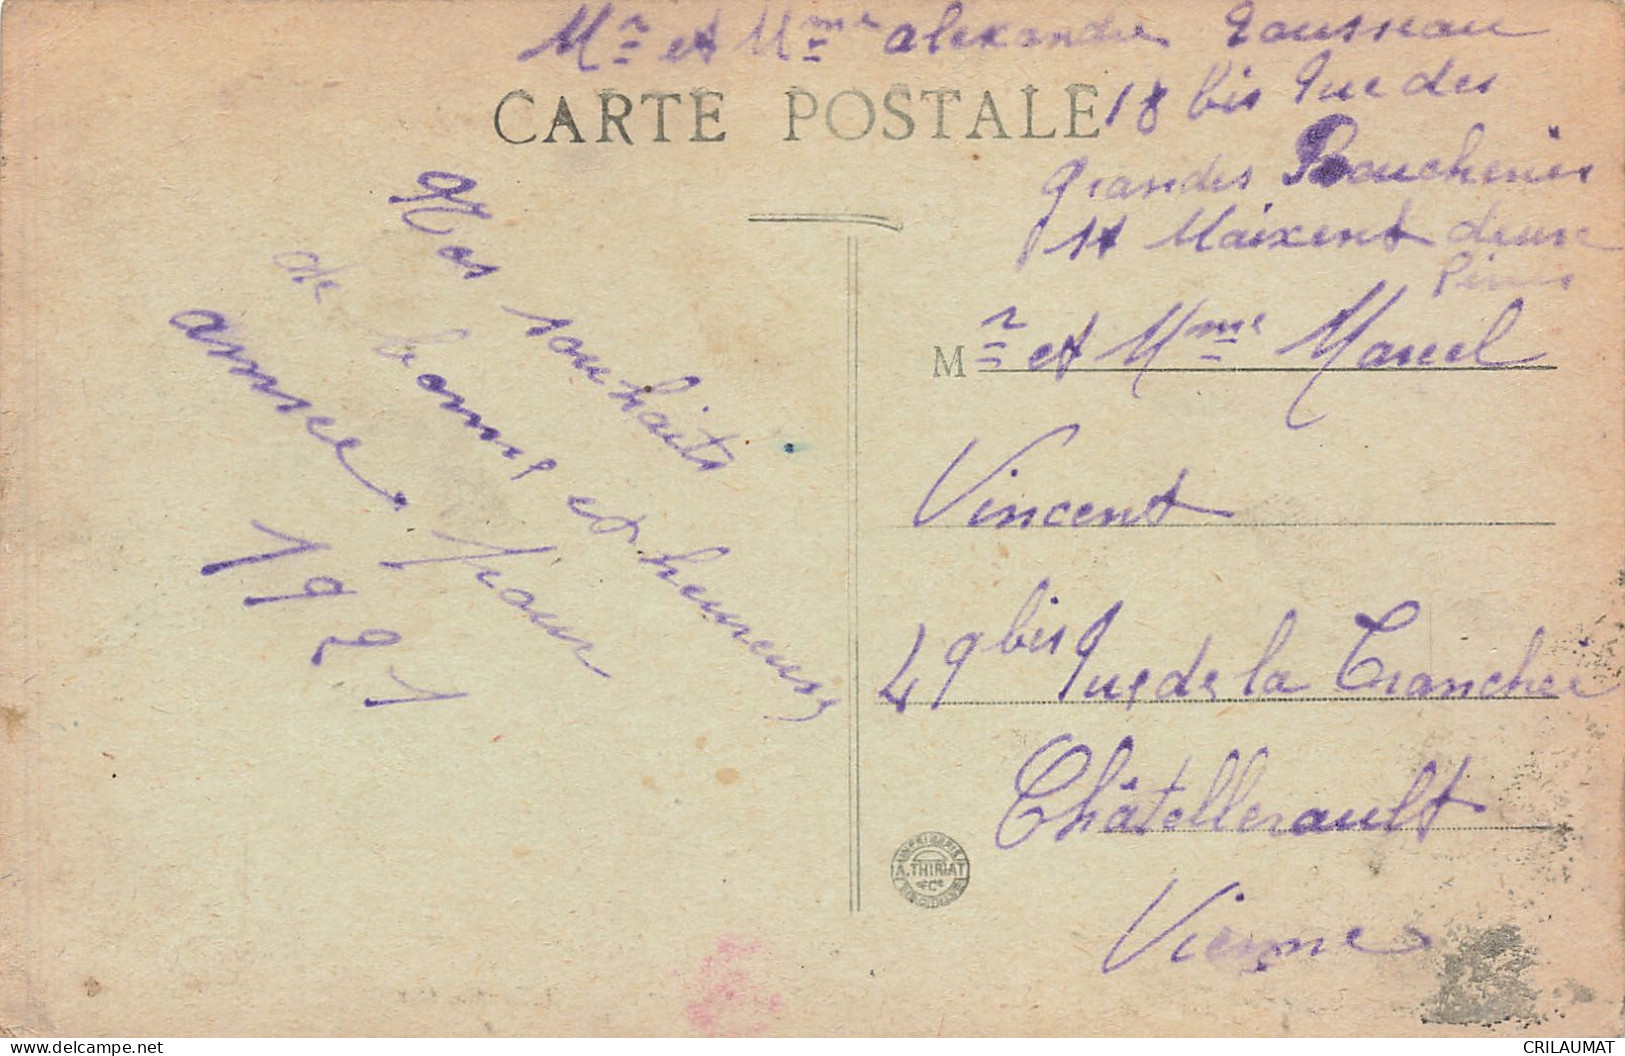 Mr et Mme alexandre Rousseau
18 bis Rue des
grandes Boucheries
St Maixent deux
CARTE POSTALE
Nos souhaits
de bonne et heureuse
annee pour
1921
Mr et Mme Marcel
Vincent
49 bis Rue de la Tranchée
Châtellerault
Vienne
IMPRIMERIE
A. THIRIAT
& Cie
CRILAUMAT